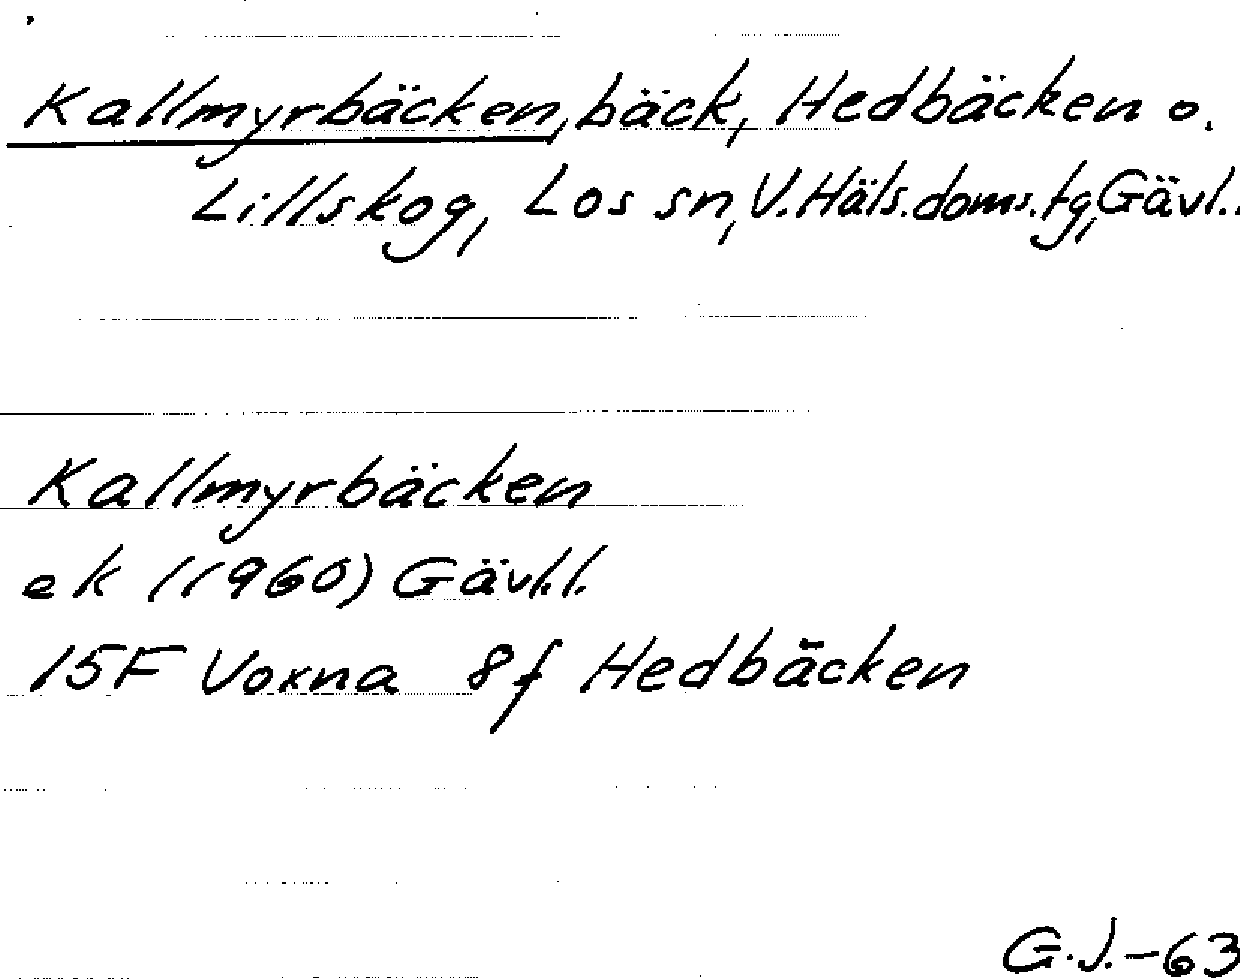 Kallmyrbäcken, bäck, Hedbäcken o.
Lillskog, Los sn, V. Häls. doms. tg, Gävl..
Kallmyrbäcken
ek (1960) Gävl.l.
15F Voxna 8f Hedbäcken
G.J.-63